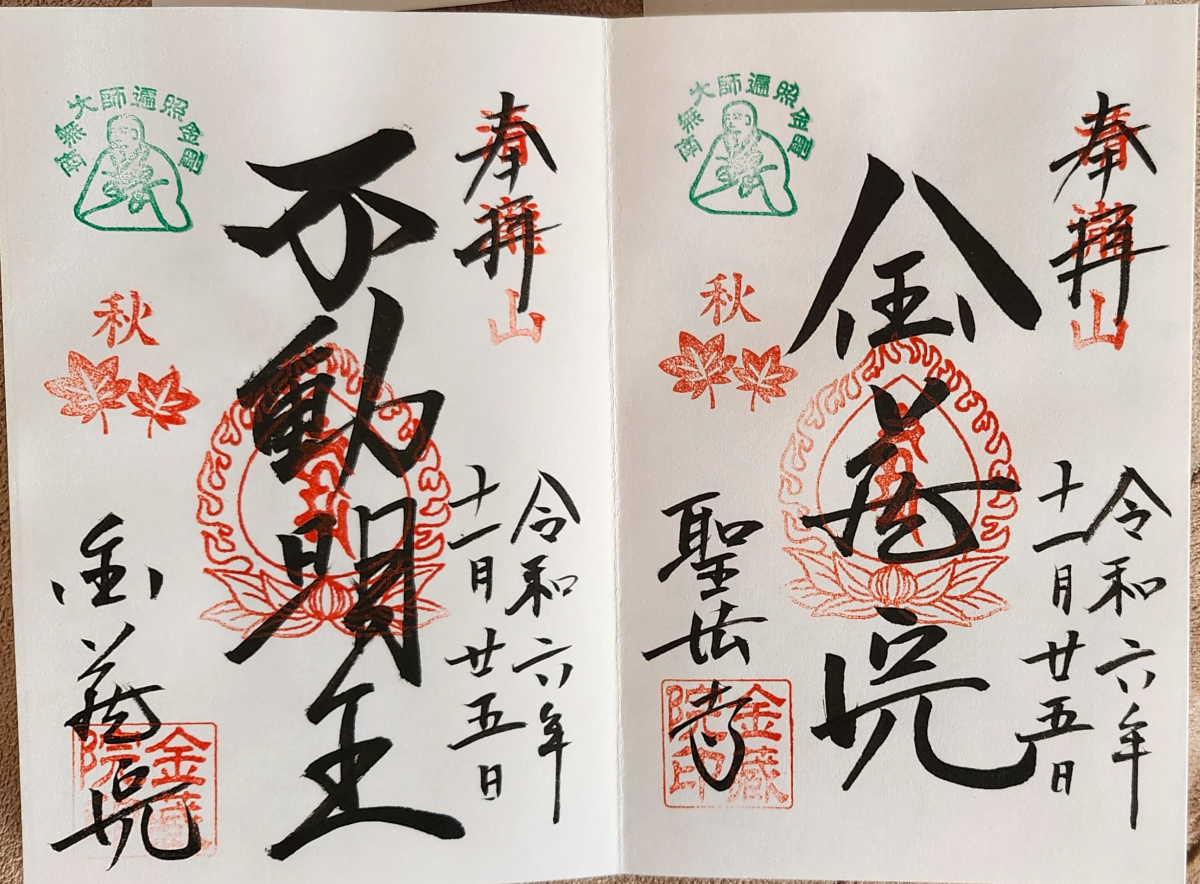 奉拝
山
令和六年
十一月廿五日
金蔵院
南無大師遍照金剛
秋
聖法寺
金蔵院印
奉拝
山
令和六年
十一月廿五日
不動明王
南無大師遍照金剛
秋
金蔵院
金蔵院印